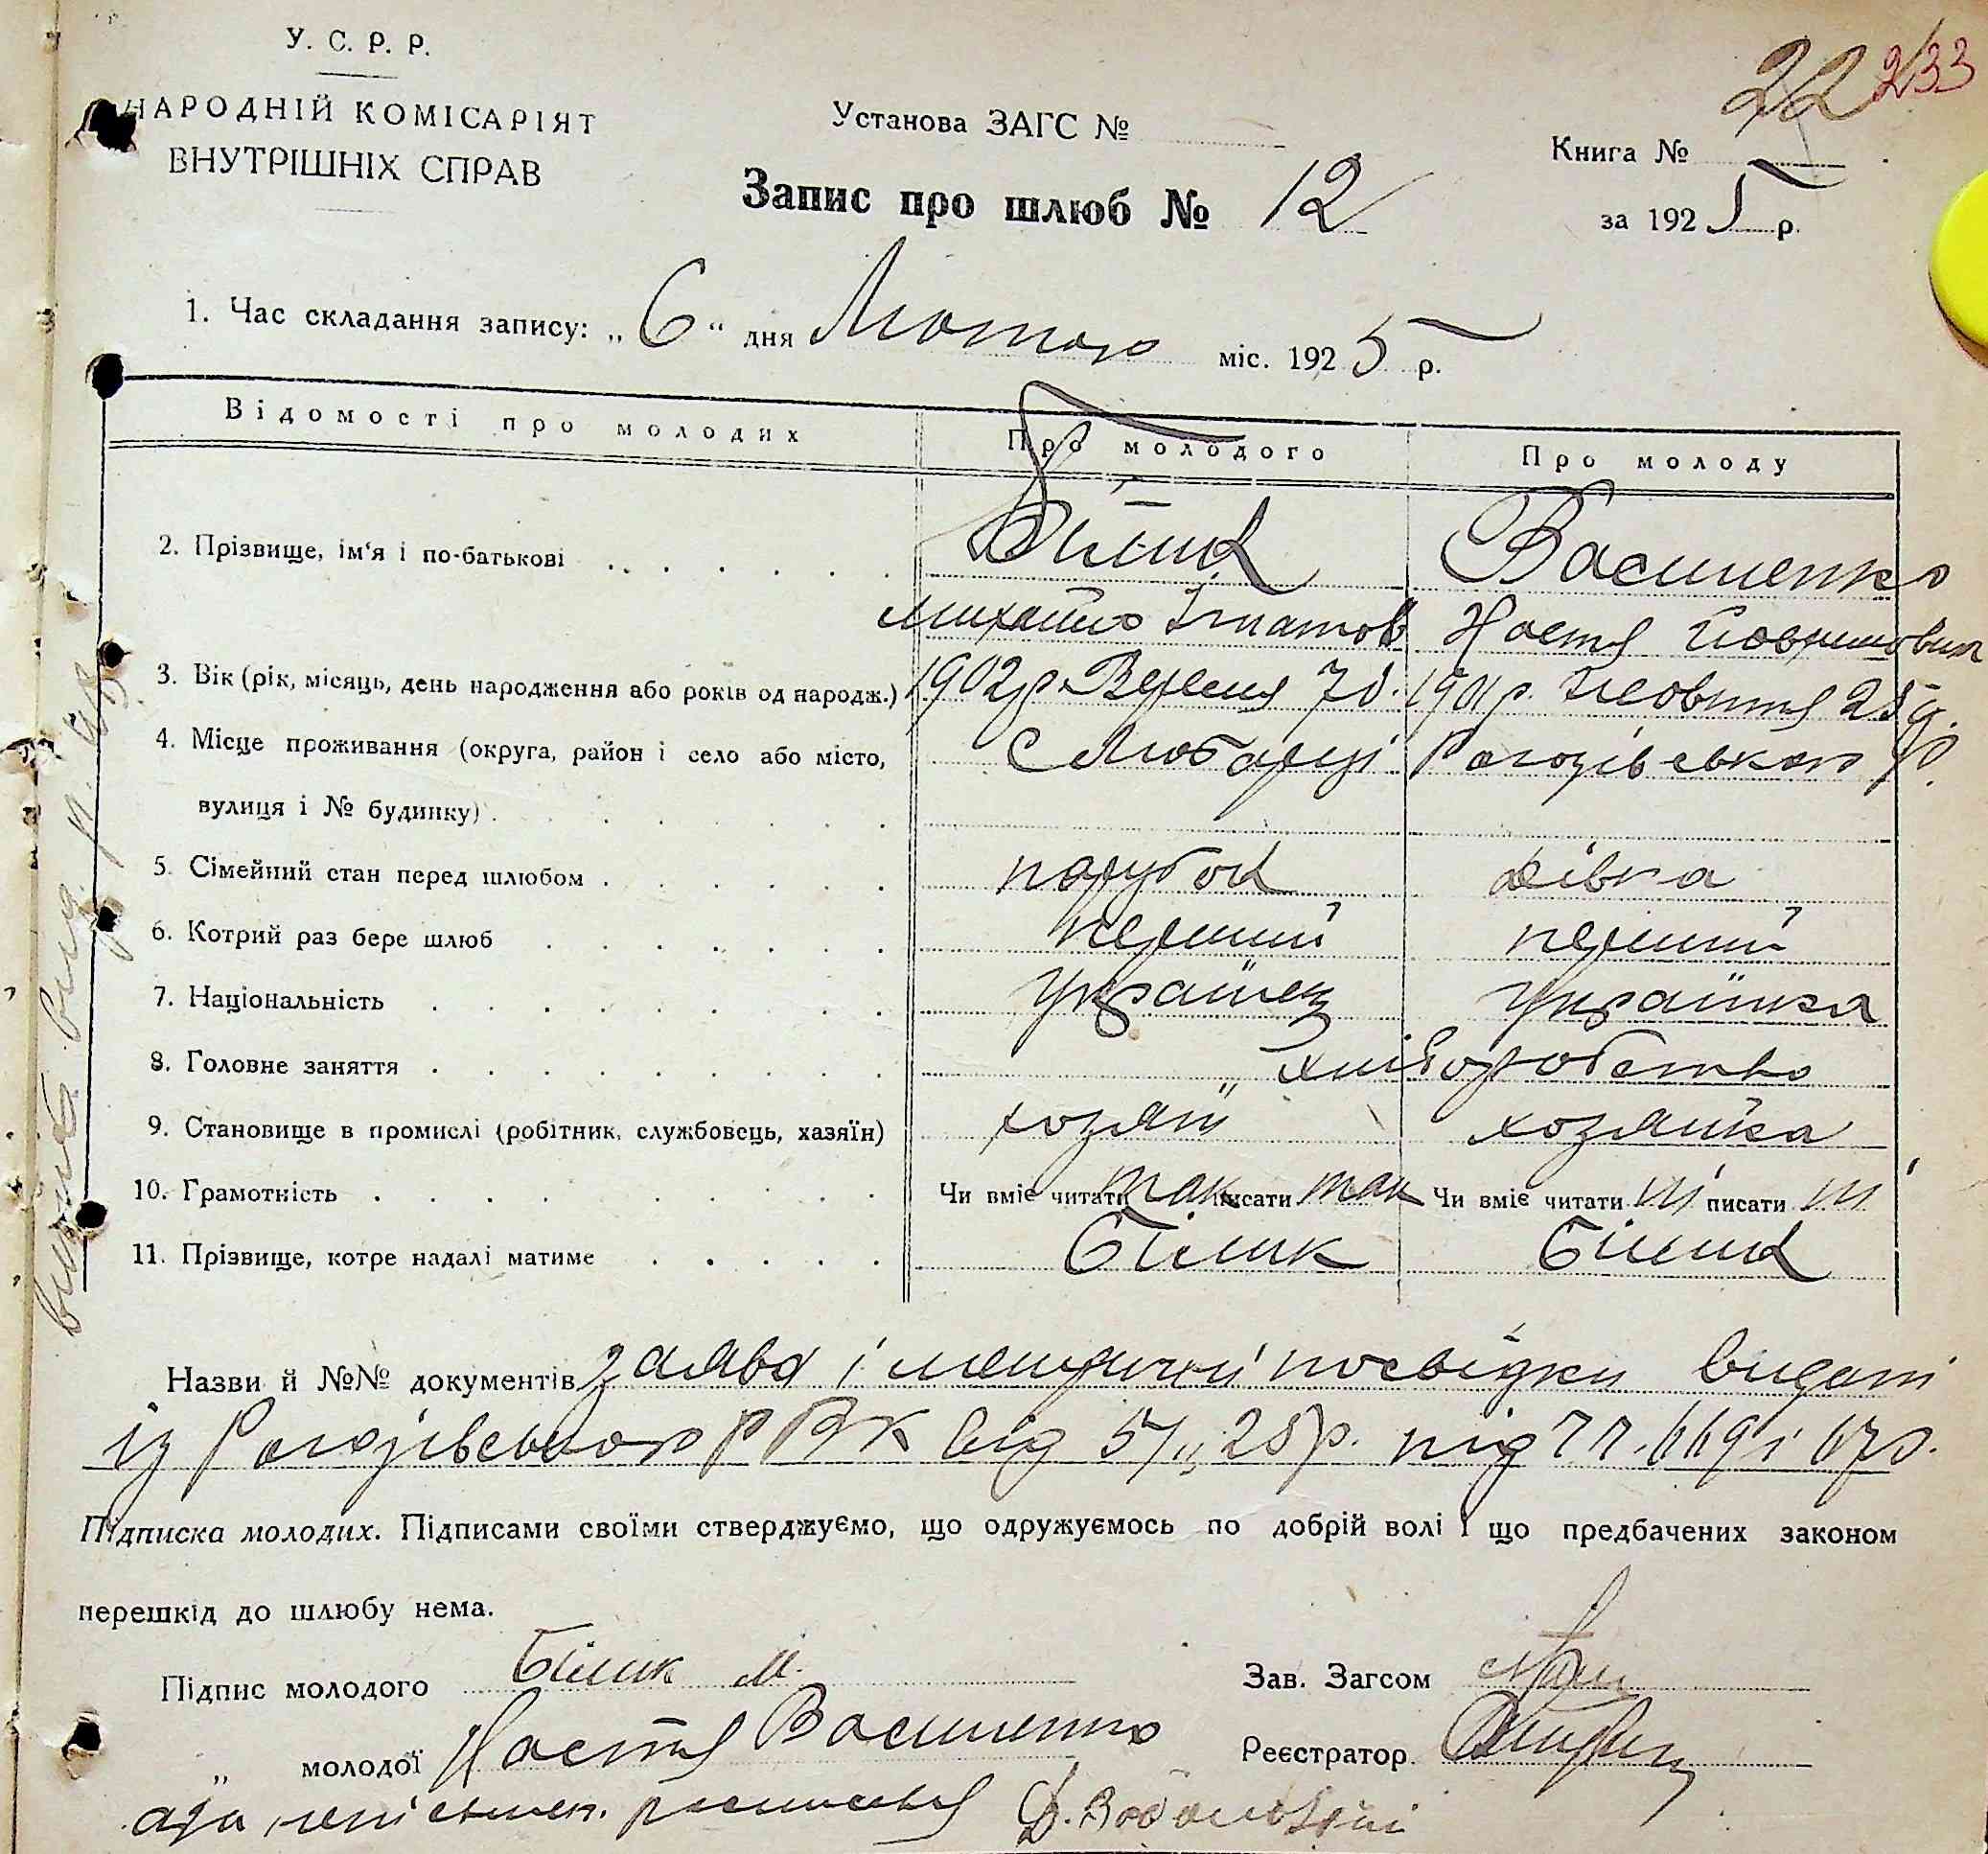 У. С. Р. Р.
НАРОДНІЙ КОМІСАРІЯТ
ВНУТРІШНІХ СПРАВ
Установа ЗАГС №
22 233
Книга №
за 1925 р.
Запис про шлюб № 12
1. Час складання запису: „6“ дня Лютого міс. 1925 р.
Відомості про молодих Про молодого Про молоду
2. Прізвище, ім‘я і по-батькові Білик Василенко
Михайло Ігнатов Настя
3. Вік (рік, місяць, день народження або років од народж.) 1902 р. Вересня 7 д. 1901 р. Жовтня 28 д.
4. Місце проживання (округа, район і село або місто, С Любарці Рогозівського р.
вулиця і № будинку)
5. Сімейний стан перед шлюбом парубок дівка
6. Котрий раз бере шлюб перший перший
7. Національність Українец Українка
8. Головне заняття хліборобство
9. Становище в промислі (робітник, службовець, хазяїн) хозяїн хозяйка
10. Грамотність Чи вміє читати так писати так Чи вміє читати ні писати ні
11. Прізвище, котре надалі матиме Білик Білик
Назви й №№ документів заява і посвідки видані
із Рогозівського РВК від 5/II 25 р. під
Підписка молодих. Підписами своїми стверджуємо, що одружуємось по добрій волі і що предбачених законом
перешкід до шлюбу нема.
Підпис молодого Білик М.
Зав. Загсом
„ молодої Настя Василенко
Реєстратор